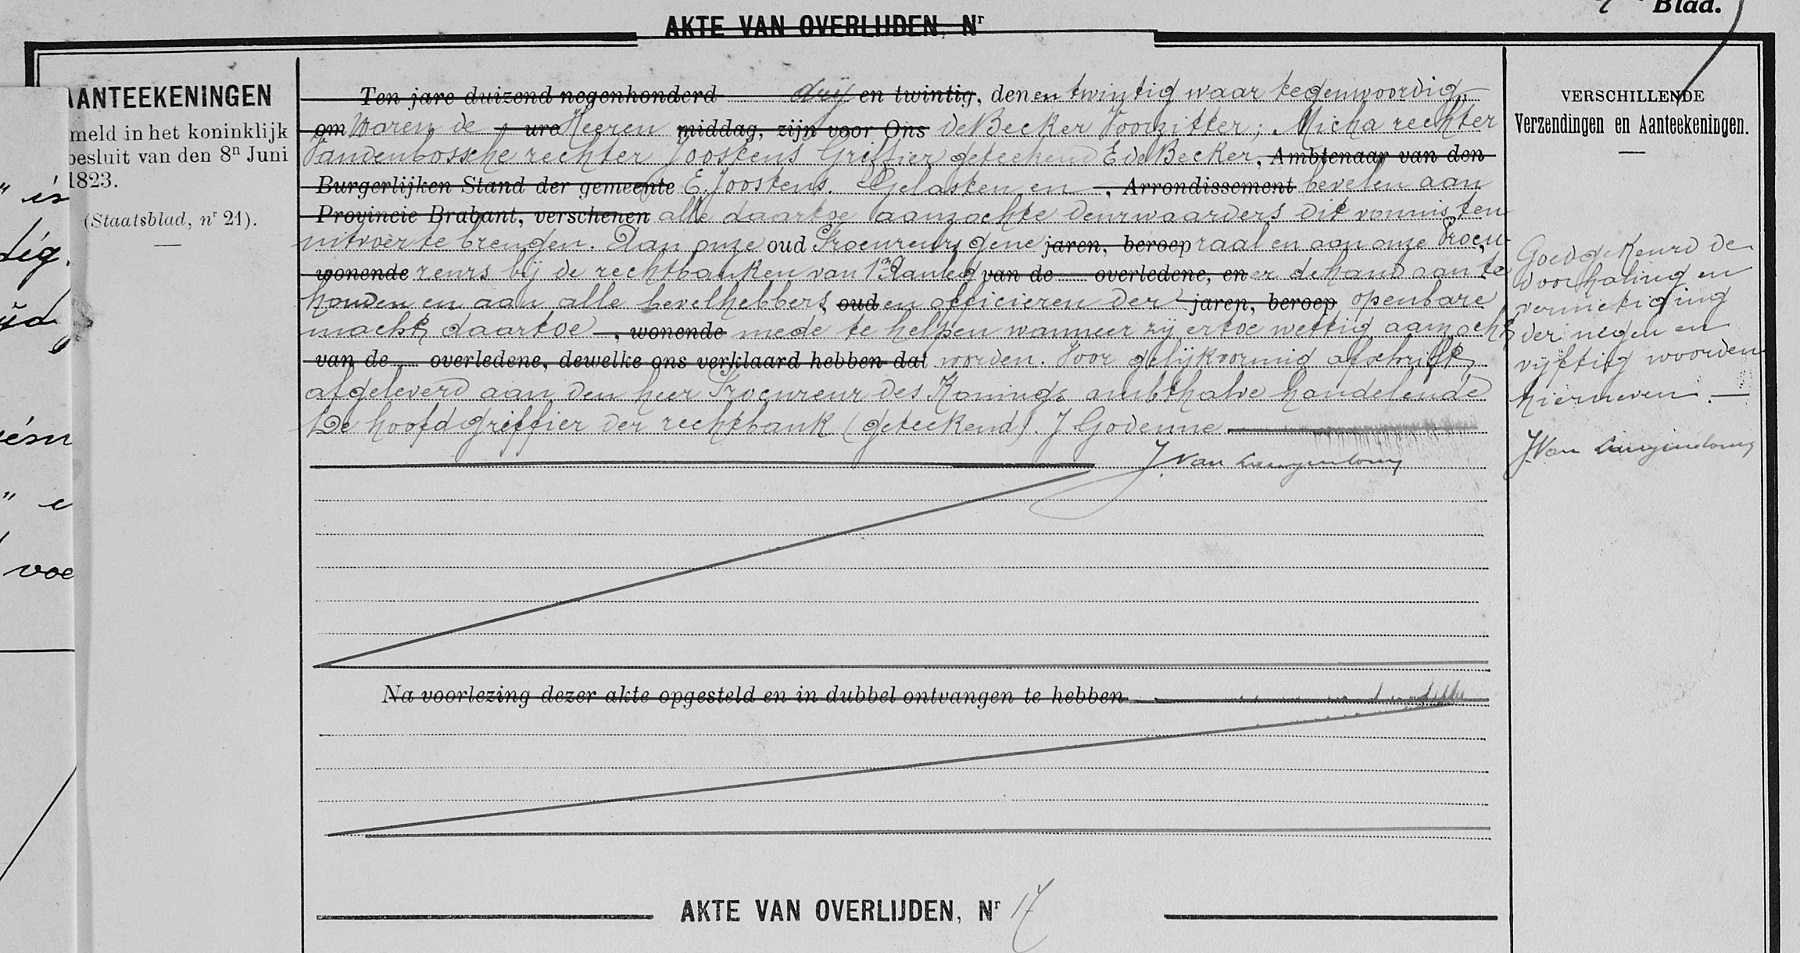 Blad.
AKTE VAN OVERLIJDEN, Nr
AANTEEKENINGEN
meld in het koninklijk
besluit van den 8n Juni
1823.
(Staatsblad, nr 21).
Ten jare duizend negenhonderd drij en twintig, den en twintig waar tegenwoordig
om Waren de ure Heeren middag, zijn voor Ons de Becker Voorzitter; Micha rechter
Vandenbossche rechter Joostens Griffier geteekend E de Becker, Ambtenaar van den
Burgerlijken Stand der gemeente E. Joostens. Gelasten en , Arrondissement bevelen aan
Provincie Brabant, verschenen alle daartoe aanzochte deurwaarders dit vonnis ten
uitvoer te brengen. Aan onze oud Procureurs gene jaren, beroep raal en aan onze Procu-
wonende reurs bij de rechtbanken van 1n Aanleg van de overledene, en er de hand aan te
houden en aan alle bevelhebbers, oud en officieren der jaren, beroep openbare
macht, daartoe , wonende mede te helpen wanneer zij ertoe wettig aanzocht
van de overledene, dewelke ons verklaard hebben dat worden. Voor gelijkvormig afschrift,
afgeleverd aan den heer Procureur des Konings ambthalve handelende
De hoofdgriffier der rechtbank (geteekend). J Godenne
J. Van
Na voorlezing dezer akte opgesteld en in dubbel ontvangen te hebben
AKTE VAN OVERLIJDEN, Nr 17
VERSCHILLENDE
Verzendingen en Aanteekeningen.
Goedgekeurd de
doorhaling en
vernietiging
der negen en
vijftig woorden
hierneven.
J. Van